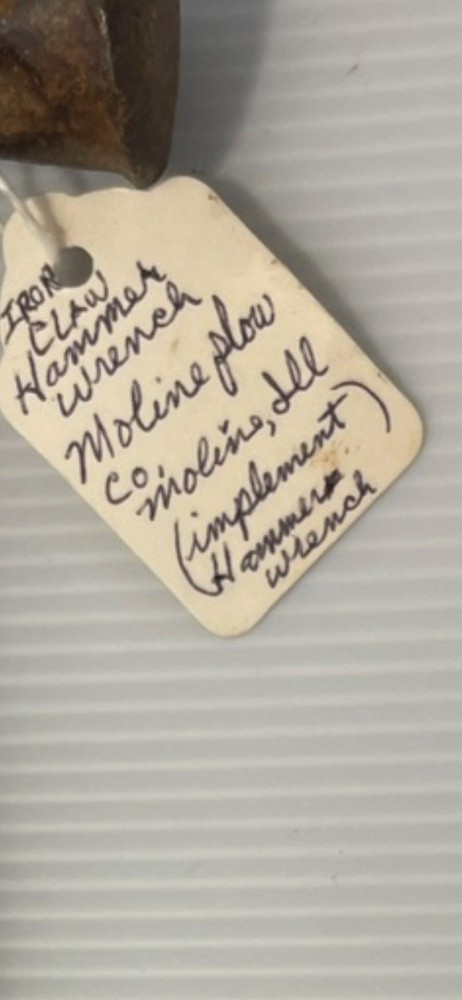 IRON
CLAW
Hammer
wrench
Moline plow
co, moline, Ill
(implement)
(Hammer
wrench